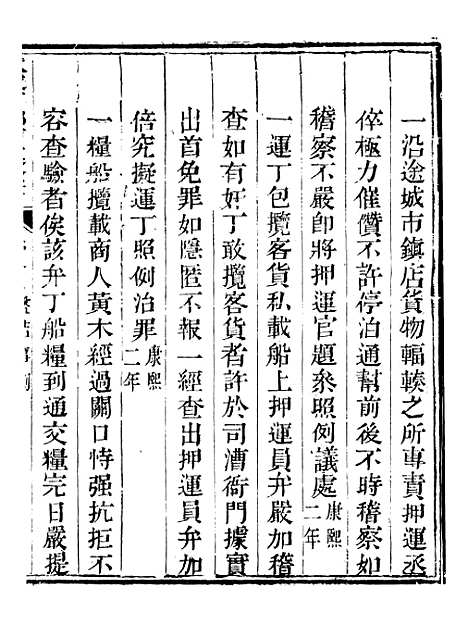 一沿途城市鎮店貨物輻輳之所專責押運丞
倅極力催儹不許停泊通幫前後不時稽察如
稽察不嚴卽將押運官題參照例議處康熙二年
一運丁包攬客貨私載船上押運員弁嚴加稽
查如有奸丁敢攬客貨者許於司漕衙門據實
出首免罪如隱匿不報一經查出押運員弁加
倍究擬運丁照例治罪康熙二年
一糧船攬載商人黃木經過關口恃强抗拒不
容查驗者俟該弁丁船糧到通交糧完日嚴提